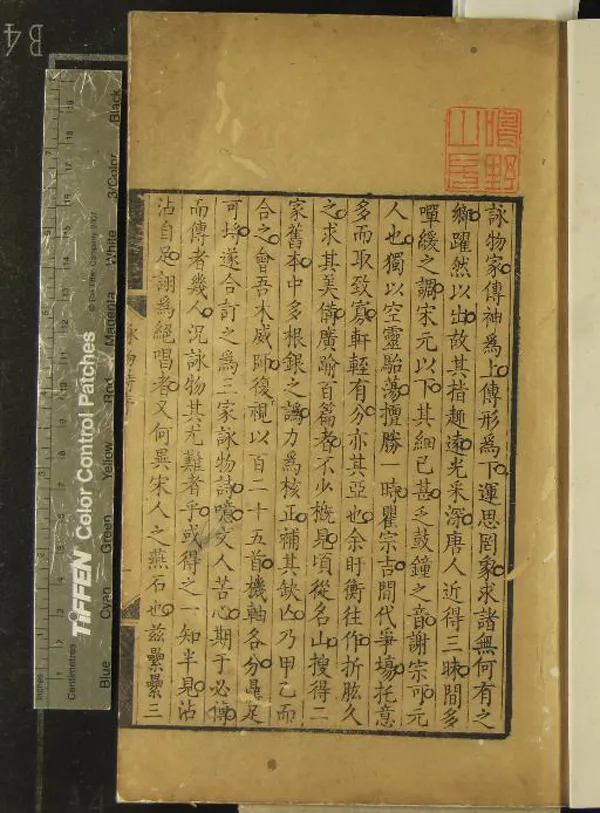 詠物家傳神爲上傳形爲下運思罔象求諸無何有之
鄉躍然以出故其指趣遠光采深唐人近得三昧間多
嘽緩之調宋元以下其細已甚乏鼓鐘之音謝宗可元
人也獨以空靈駘蕩擅勝一時瞿宗吉間代爭塲托意
多而取致寡軒輊有分亦其亞也余盱衡往作折肱久
之求其美備廣踰百篇者不少槪見頃從名山搜得二
家舊本中多根銀之譌力爲核正補其缺凶乃甲乙而
合之會吾木威師復視以百二十五首機軸各分鼎足
可埓遂合訂之爲三家詠物詩噫文人苦心期于必傳
而傳者幾人況詠物其尤難者乎或得之一知半見沾
沾自足詡爲絕唱者又何異宋人之燕石也兹纍纍三
詠物詩序
鳴野山房
TIFFEN Color Control Patches
© The Tiffen Company, 2007
Blue
Cyan
Green
Yellow
Red
Magenta
White
3/Color
Black
Inches
Centimetres
B4